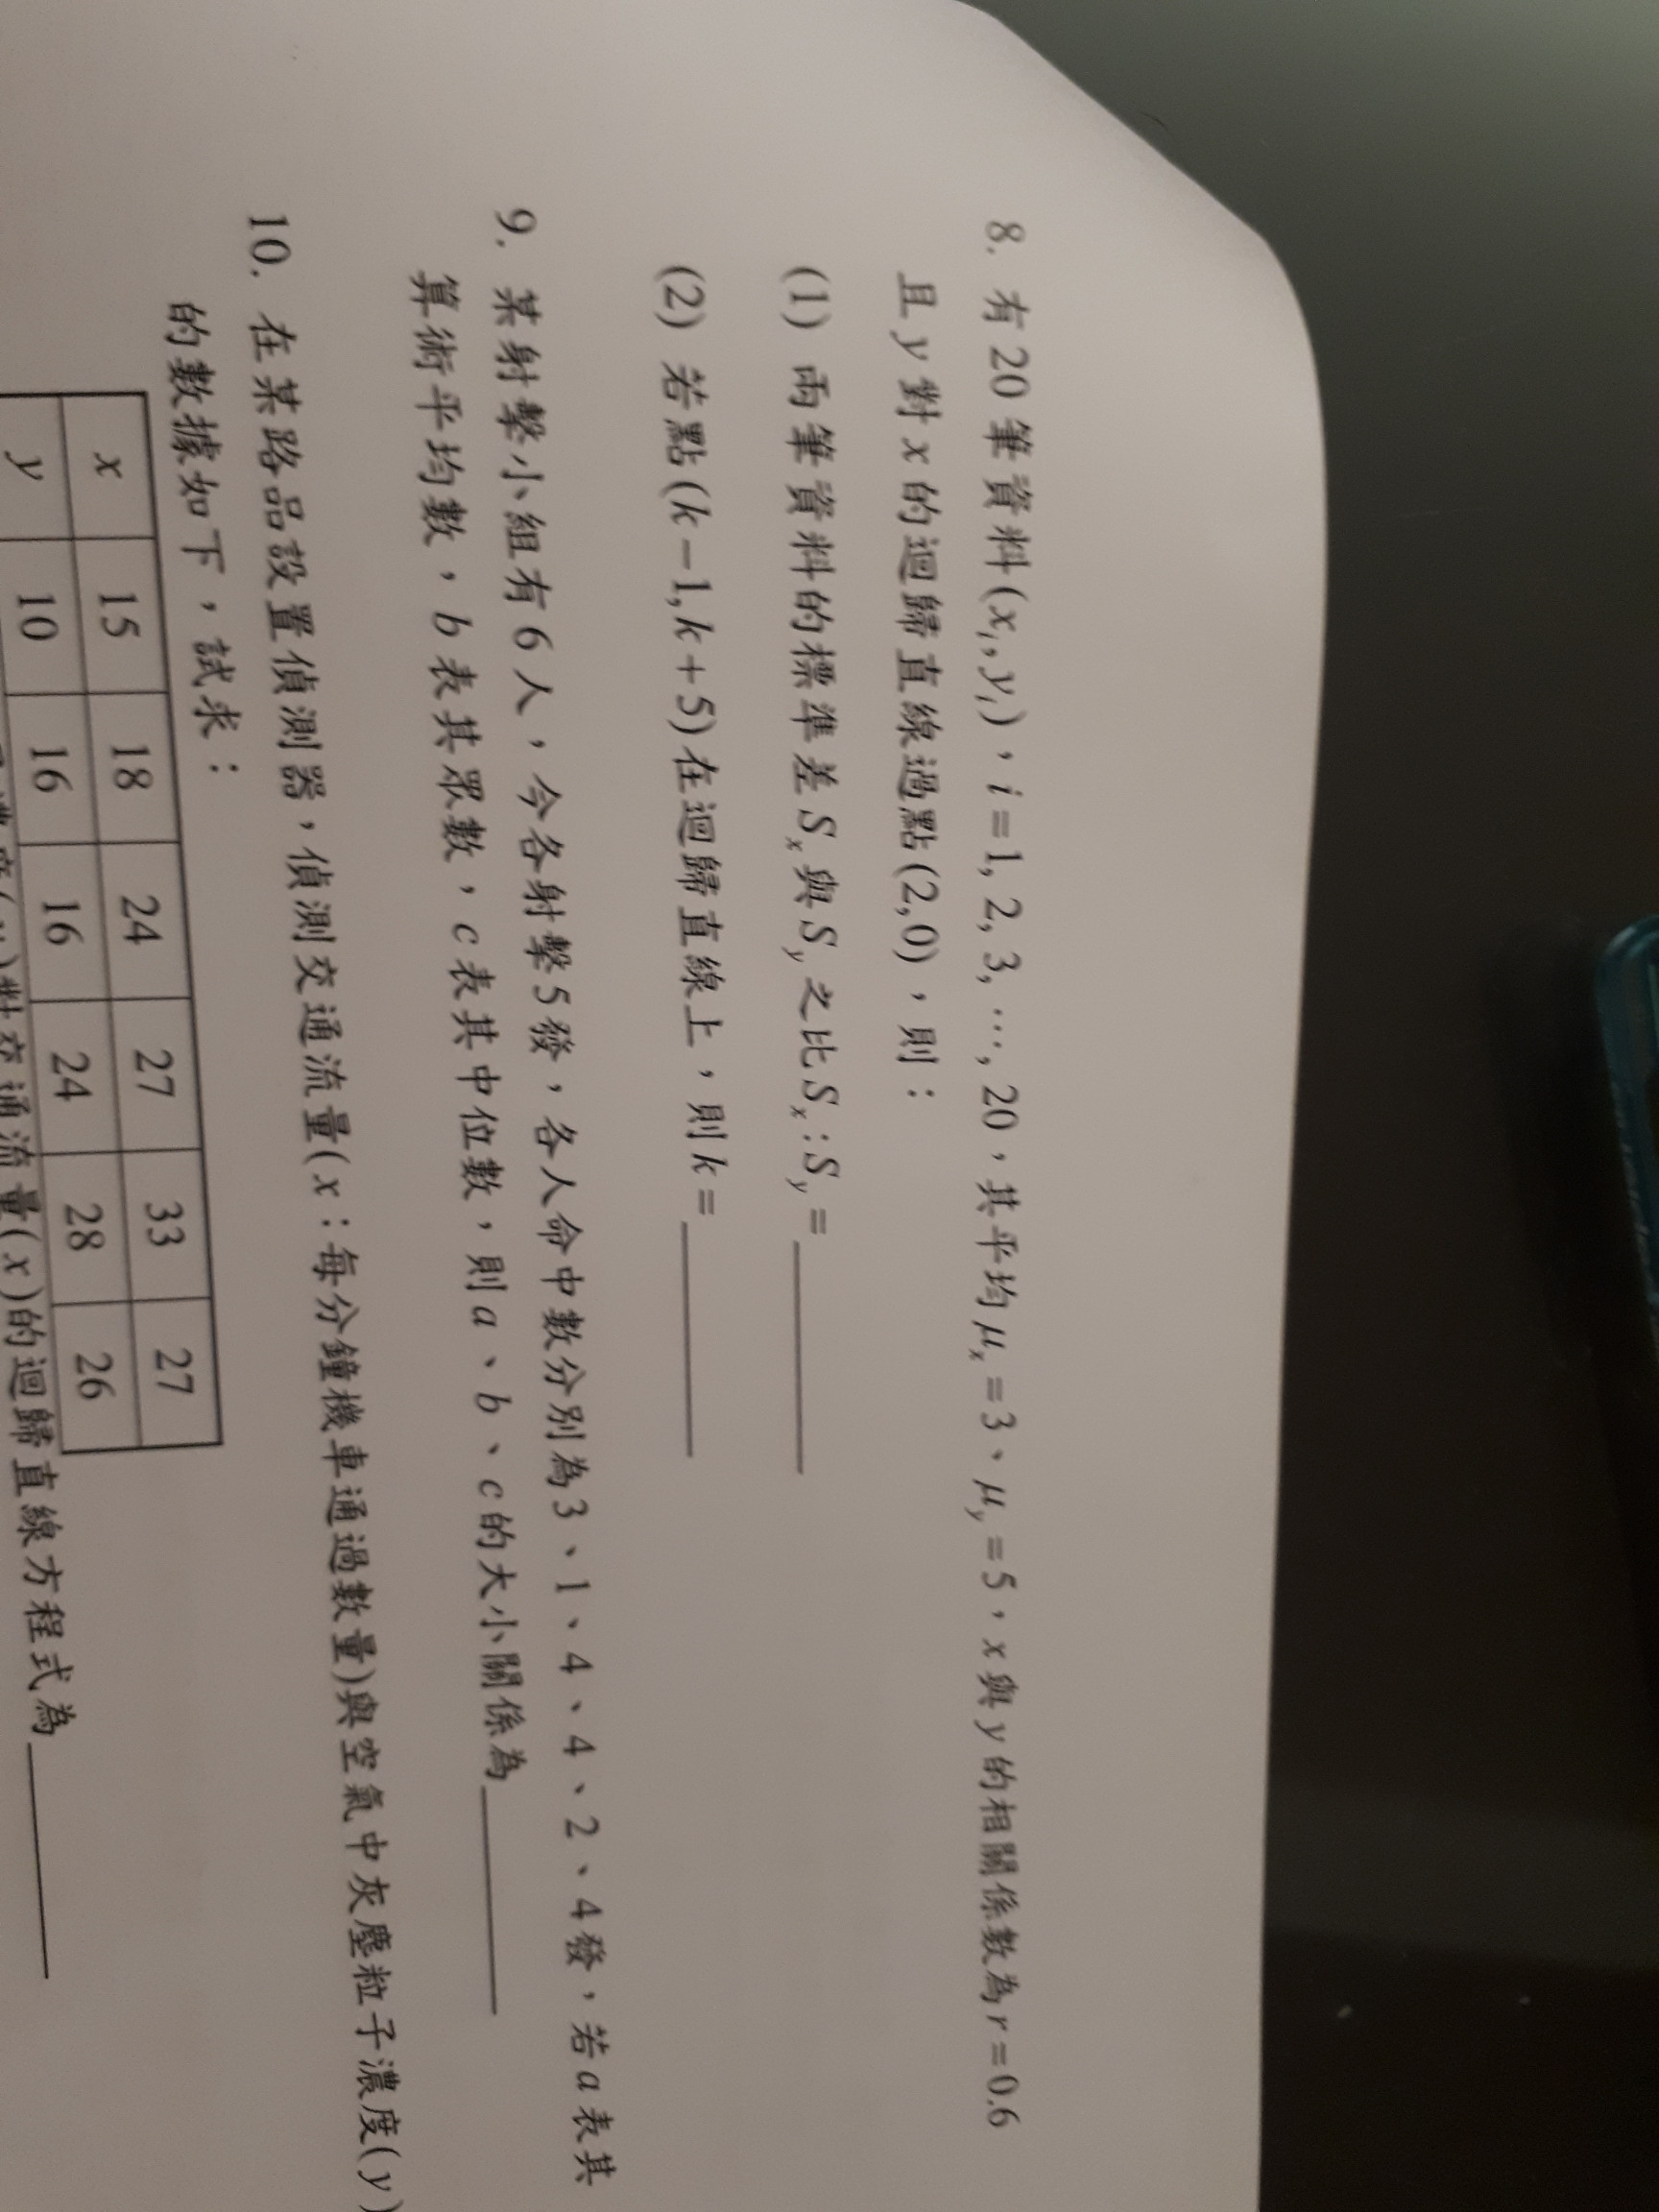 8. 有20筆資料(xᵢ,yᵢ),i=1, 2, 3, ⋯, 20,其平均μₓ=3、μᵧ=5,x與y的相關係數為r=0.6
且y對x的迴歸直線過點(2,0),則:
(1) 兩筆資料的標準差Sₓ與Sᵧ之比Sₓ:Sᵧ=______
(2) 若點(k-1,k+5)在迴歸直線上,則k=______
9. 某射擊小組有6人,今各射擊5發,各人命中數分別為3、1、4、4、2、4發,若a表其
算術平均數,b表其眾數,c表其中位數,則a、b、c的大小關係為______
10. 在某路品設置偵測器,偵測交通流量(x:每分鐘機車通過數量)與空氣中灰塵粒子濃度(y)
的數據如下,試求:
x 15 18 24 27 33 27
y 10 16 16 24 28 26
度(y)對交通流量(x)的迴歸直線方程式為______